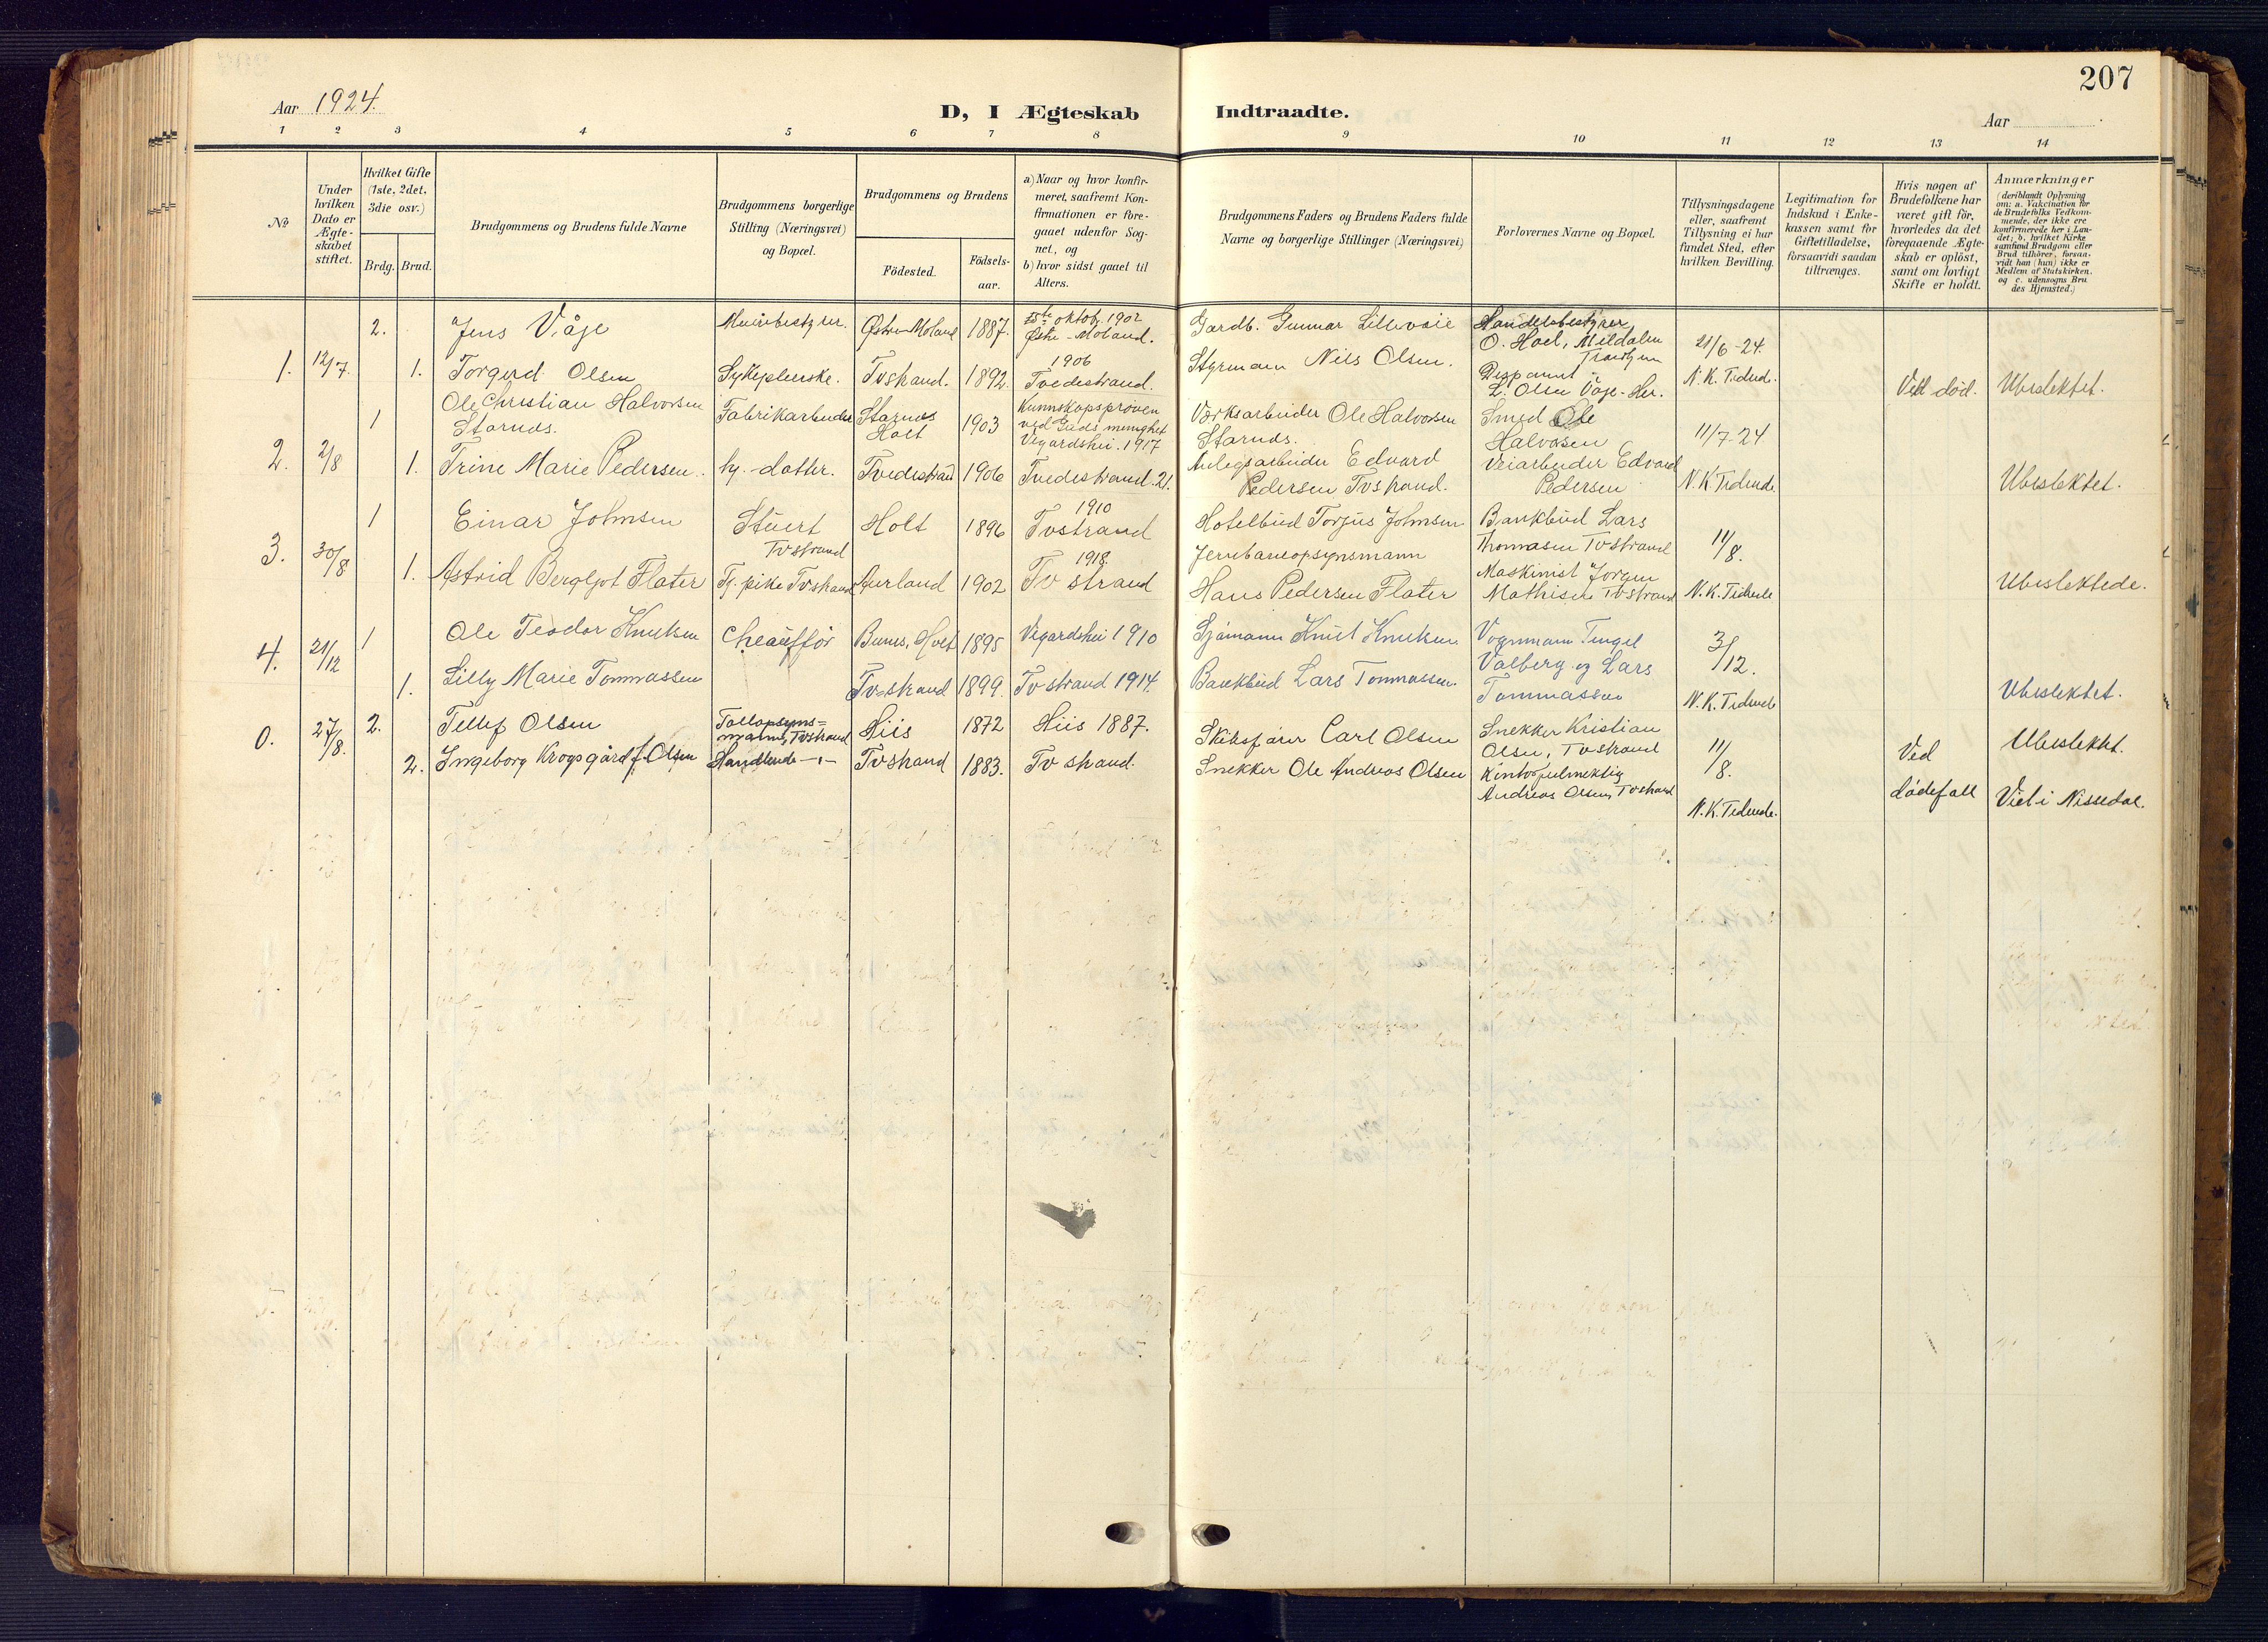 207
Aar 1924.
D, I Ægteskab Indtraadte.
Aar
1 2 3 4 5 6 7 8 9 10 11 12 13 14
No
Under hvilken Dato er Ægte-skabet stiftet.
Hvilket Gifte (1ste, 2det, 3die osv.)
Brdg. Brud.
Brudgommens og Brudens fulde Navne
Brudgommens borgerlige Stilling (Næringsvei) og Bopæl.
Brudgommens og Brudens
Födested.
Födsels-aar.
a) Naar og hvor konfir-meret, saafremt Kon-firmationen er fore-gaaet udenfor Sog-net, og
b) hvor sidst gaaet til Alters.
Brudgommens Faders og Brudens Faders fulde Navne og borgerlige Stillinger (Næringsvei)
Forlovernes Navne og Bopæl.
Tillysningsdagene eller, saafremt Tillysning ei har fundet Sted, efter hvilken Bevilling.
Legitimation for Indskud i Enke-kassen samt for Giftetilladelse, forsaavidt saadan tiltrænges.
Hvis nogen af Brudefolkene har været gift för, hvorledes da det foregaaende Ægte-skab er oplöst, samt om lovligt Skifte er holdt.
Anmærkninger
(deriblandt Oplysning om: a. Vakcination for de Brudefolks Vedkom-mende, der ikke ere konfirmerede her i Lan-det; b. hvilket Kirke-samfund Brudgom eller Brud tilhörer, forsaa-vidt han (hun) ikke er Medlem af Statskirken, og c. udensogns Bru-des Hjemsted.)
2. Jens Våje Östre-Moland 1887. oktob. 1902 Östre-Moland. Gardb. Gunnar Handelsbestyrer O. Hoel, 21/6-24.
1. 12/7. 1. Torgerd Olsen Sykepleierske. Tvstrand. 1892. 1906 Tvedestrand. Styrmann Niels Olsen. L. Olsen N.K. Tidende. Ved död. Ubeslektet.
1 Ole Christian Halvorsen Starnes. Fabrikarbeider Starnes Holt 1903 Kunnskapspröven ved Guds menighet Vegardshei. 1917 Verksarbeider Ole Halvorsen Starnes. Smed Ole Halvorsen 11/7-24
2. 2/8 1. Trine Marie Pedersen. hj.-datter. Tvedestrand 1906 Tvedestrand. 21. Anlegsarbeider Edvard Pedersen Tvstrand. Veiarbeider Edvard Pedersen N.K. Tidende. Ubeslektet.
1 Einar Johnsen Stuert Tvstrand Holt 1896 1910 Tvstrand Hotelbud Torjus Johnsen Bankbud Lars Thomasen Tvstrand 11/8.
3. 30/8 1. Astrid Bergljot Flater Tj. pike Tvstrand Aurland 1902 1918 Tvstrand Jernbaneopsynsmann Hans Pedersen Flater Maskinist Jorgen Mathisen Tvstrand N.K. Tidende Ubeslektede.
4. 21/12 1 Ole Teodor Knutsen Cheaufför Holt 1895 Vegardshei 1910 Sjömann Knut Knutsen Vognmann Tengel Valberg og Lars Tommassen 3/12.
1. Lilly Marie Tommassen Tvstrand 1899. Tvstrand 1914. Bankbud Lars Tommassen. N.K. Tidende Ubeslektet.
0. 27/8. 2. Tellef Olsen Tollopsyns=mann, Tvstrand Hiis 1872 Hiis 1887. Skibsförer Carl Olsen Snekker Kristian Olsen, Tvstrand 11/8. Ved dödefall Ubeslektet.
2. Ingeborg Krogsgård f. Olsen Handlende -"- Tvstrand 1883. Tvstrand. Snekker Ole Andreas Olsen Andreas Olsen, Tvstrand N.K. Tidende. Viet i Nissedal.